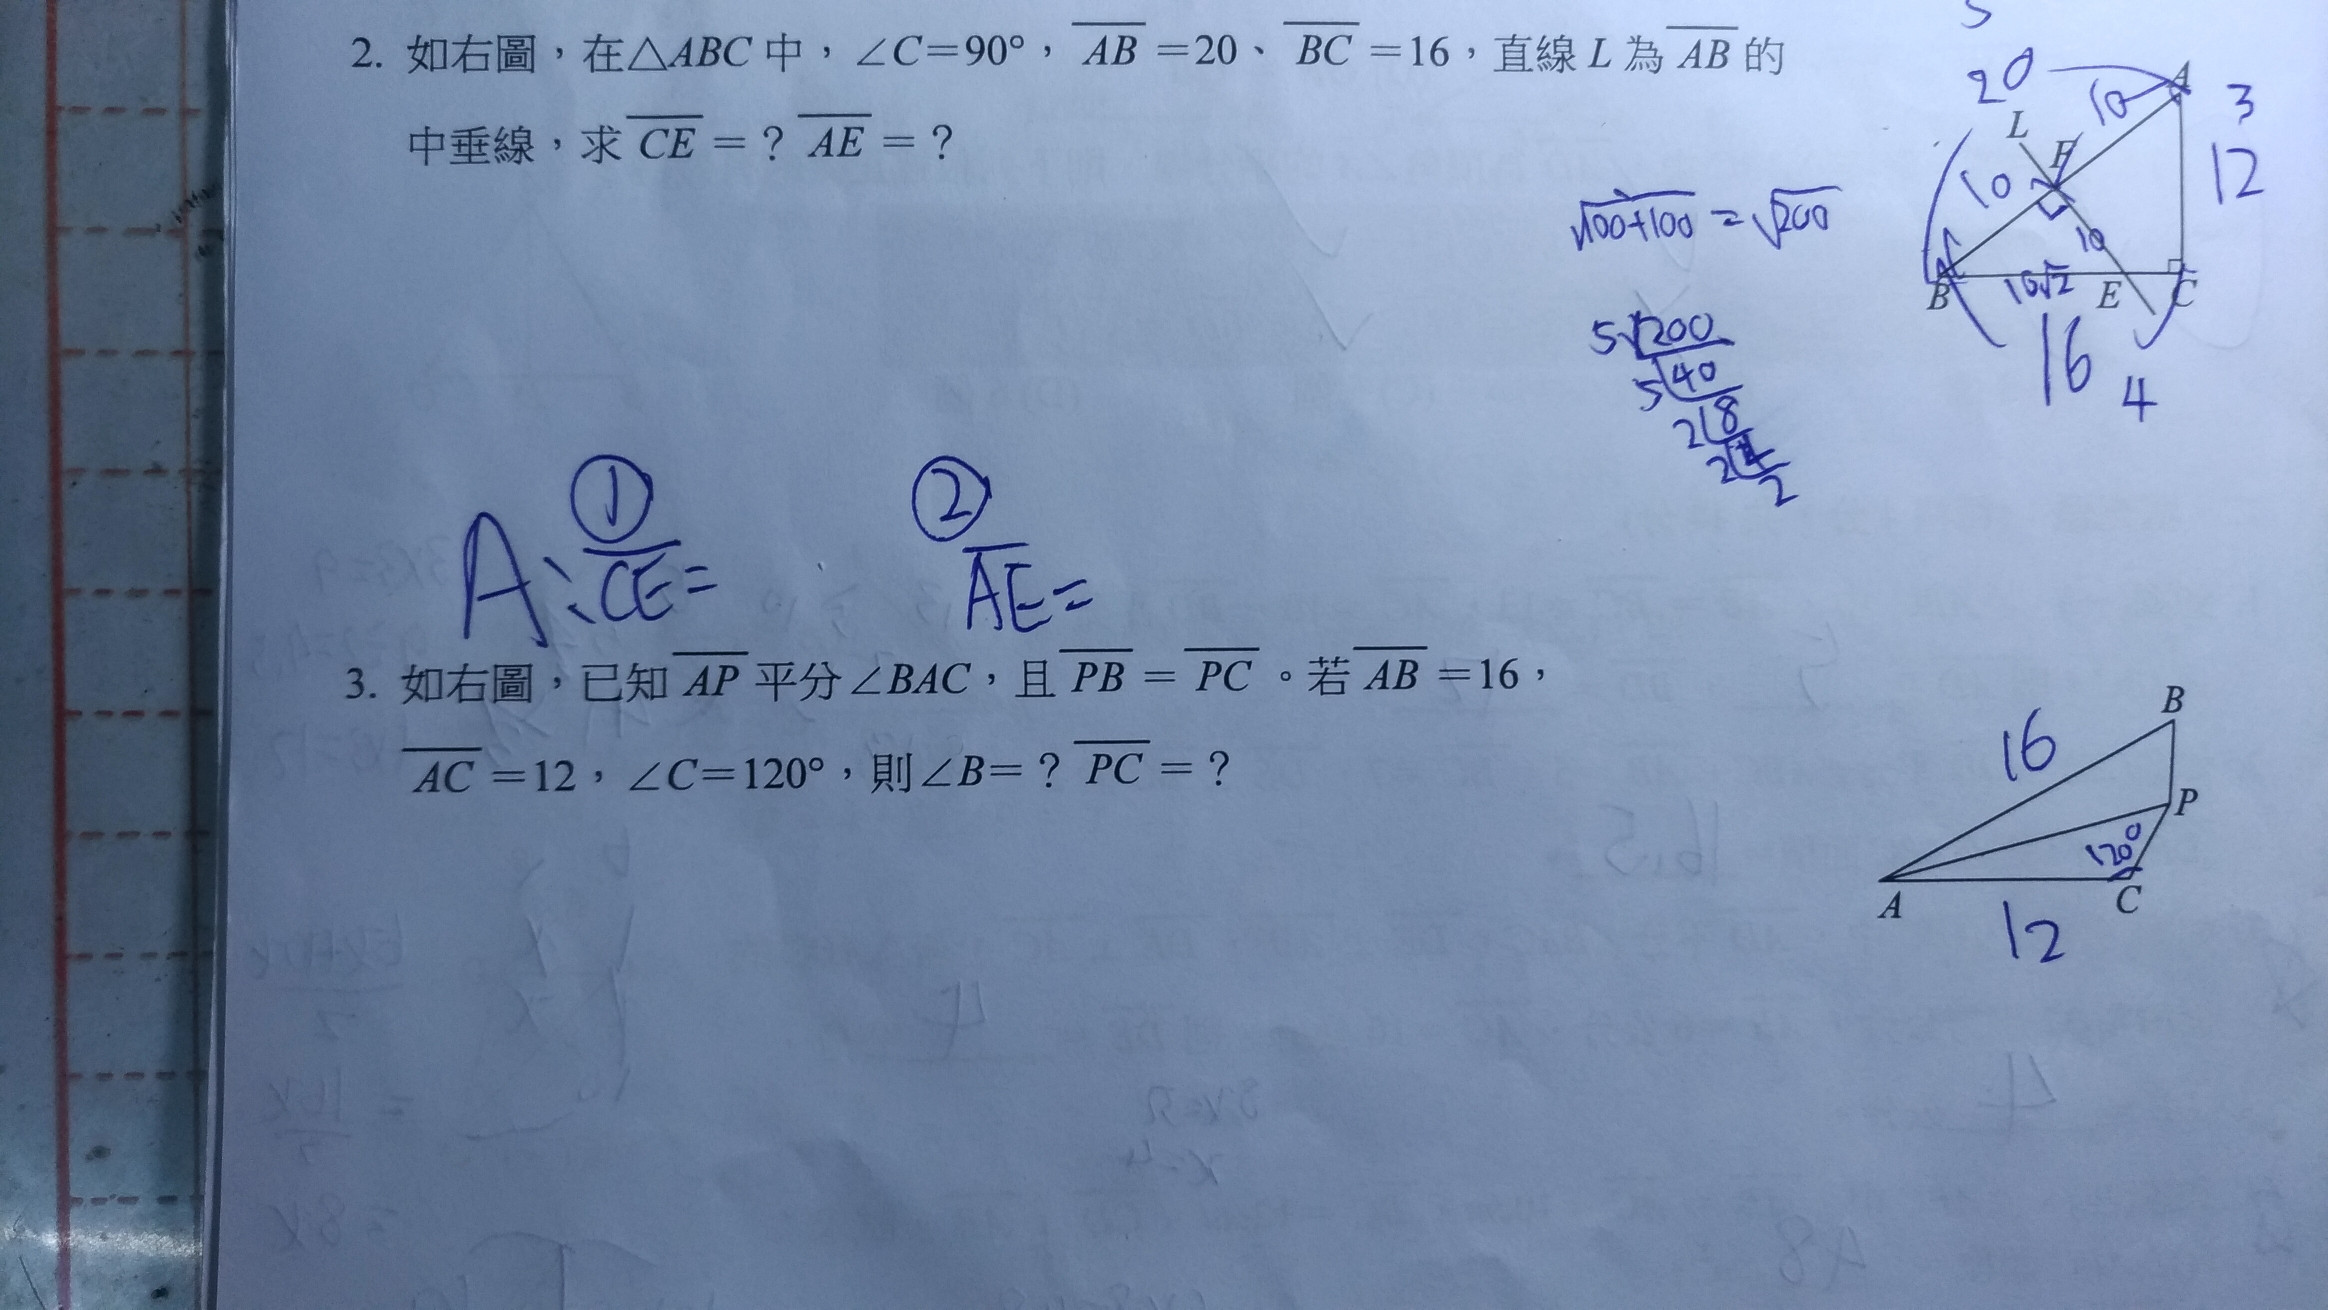 2. 如右圖，在△ABC中，∠C＝90°，AB＝20、BC＝16，直線L為AB的
中垂線，求CE＝？AE＝？
20
10
A
3
L
F
10
12
√100+100 = √200
10
B
10√2
E
C
16
4
5√200
5 40
2 8
2 4
2
① ②
A: CE= AE=
3. 如右圖，已知AP平分∠BAC，且PB＝PC。若AB＝16，
AC＝12，∠C＝120°，則∠B＝？PC＝？
B
16
P
120°
A
C
12